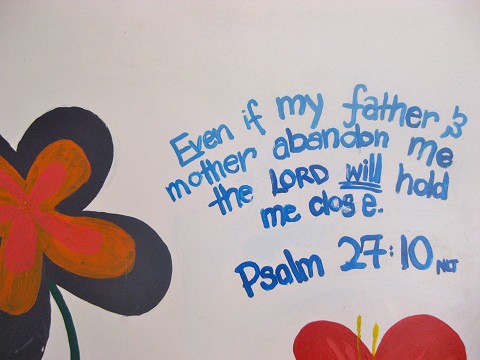 Even if my father &
mother abandon me
the LORD will hold
me close.
Psalm 27:10 NLT